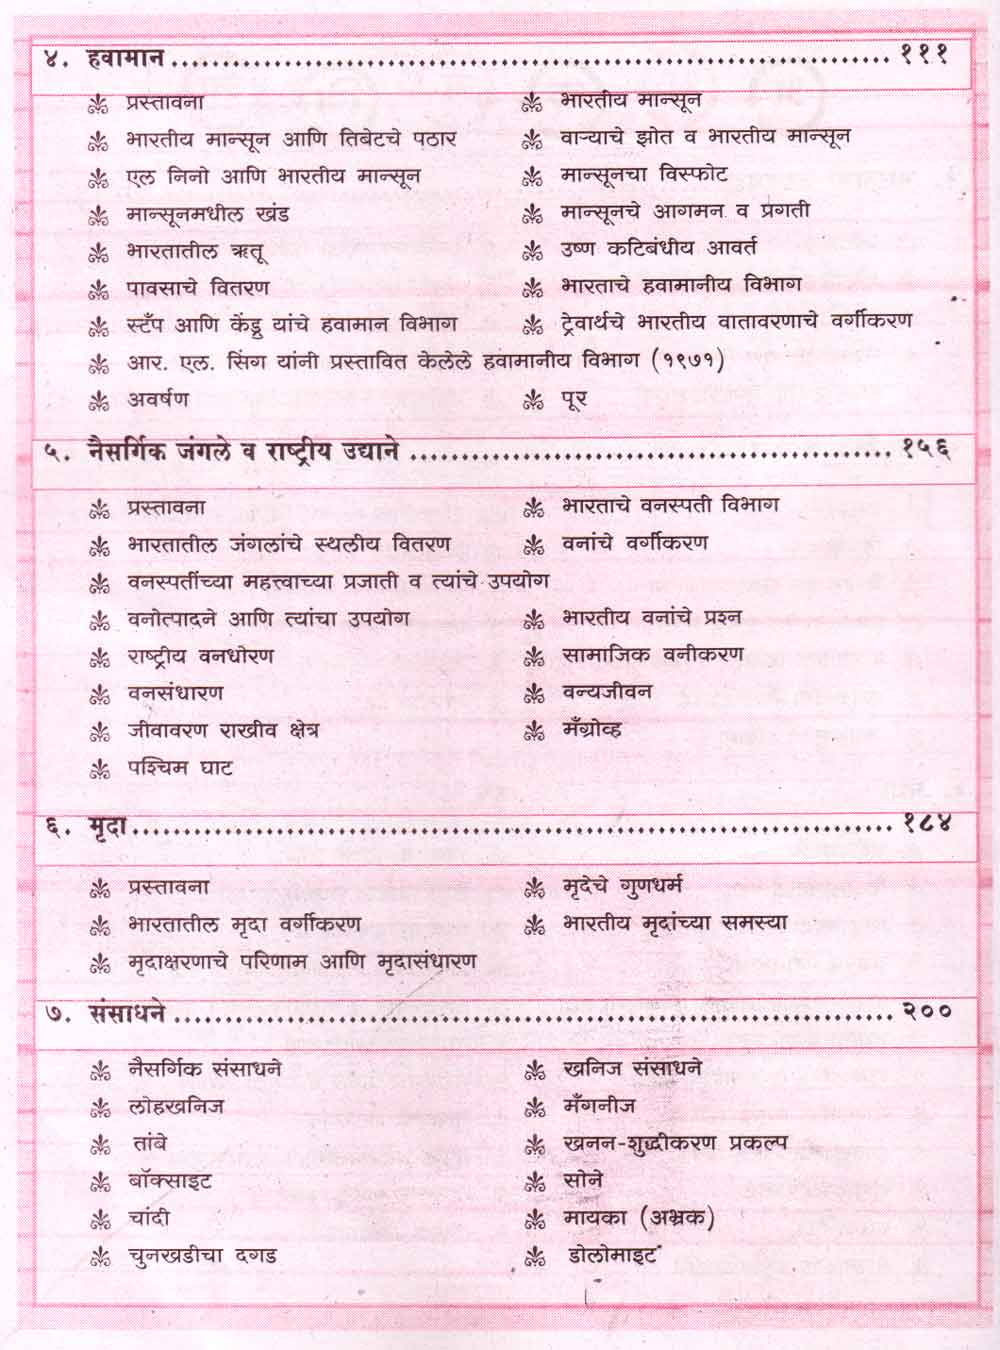 ४. हवामान ........................................................ १११
प्रस्तावना
भारतीय मान्सून
भारतीय मान्सून आणि तिबेटचे पठार
वाऱ्याचे झोत व भारतीय मान्सून
एल निनो आणि भारतीय मान्सून
मान्सूनचा विस्फोट
मान्सूनमधील खंड
मान्सूनचे आगमन व प्रगती
भारतातील ऋतू
उष्ण कटिबंधीय आवर्त
पावसाचे वितरण
भारताचे हवामानीय विभाग
स्टँप आणि केंड्रु यांचे हवामान विभाग
ट्रेवार्थचे भारतीय वातावरणाचे वर्गीकरण
आर. एल. सिंग यांनी प्रस्तावित केलेले हवामानीय विभाग (१९७१)
अवर्षण
पूर
५. नैसर्गिक जंगले व राष्ट्रीय उद्याने ...................................... १५६
प्रस्तावना
भारताचे वनस्पती विभाग
भारतातील जंगलांचे स्थलीय वितरण
वनांचे वर्गीकरण
वनस्पतींच्या महत्त्वाच्या प्रजाती व त्यांचे उपयोग
वनोत्पादने आणि त्यांचा उपयोग
भारतीय वनांचे प्रश्न
राष्ट्रीय वनधोरण
सामाजिक वनीकरण
वनसंधारण
वन्यजीवन
जीवावरण राखीव क्षेत्र
मँग्रोव्ह
पश्चिम घाट
६. मृदा ............................................................ १८४
प्रस्तावना
मृदेचे गुणधर्म
भारतातील मृदा वर्गीकरण
भारतीय मृदांच्या समस्या
मृदाक्षरणाचे परिणाम आणि मृदासंधारण
७. संसाधने ........................................................ २००
नैसर्गिक संसाधने
खनिज संसाधने
लोहखनिज
मँगनीज
तांबे
खनन-शुद्धीकरण प्रकल्प
बॉक्साइट
सोने
चांदी
मायका (अभ्रक)
चुनखडीचा दगड
डोलोमाइट